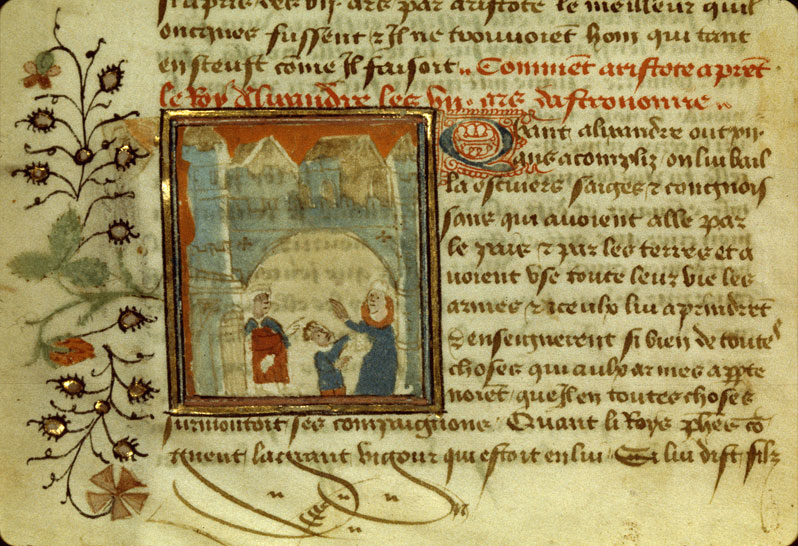 si apres les vij. ars par aristote le meilleur quil
oncques fussent & Il ne trouuoient hom qui tant
en sceust cõme Il faisoit .. Commẽt aristote aprẽt
le Roy Alixandre les vij. ars dastronomie ..
Quant alixandre out
ans acompliz on lui bail
la escuiers saiges & congnois
sans qui auoient alle par
le pais & par les terres et a
uoient vse toute leur vie les
armes & iceulx lui aprindrẽt
& enseignerent si bien de toutes
choses qui aulx armes apꝑte
noiẽt que Il en toutes choses
surmontoit ses compaignons. Quant li Roys phẽs cõ
gneut la grant vigour qui estoit en lui. Si lui dist filz